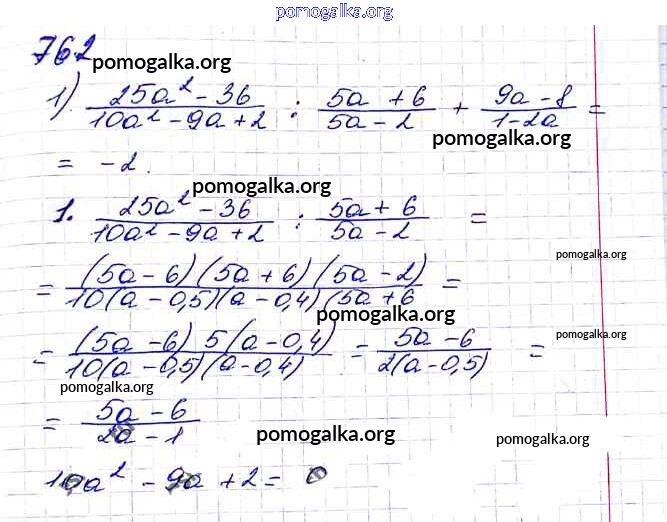 pomogalka.org
762
pomogalka.org
1) (25a² - 36)/(10a² - 9a + 2) : (5a + 6)/(5a - 2) + (9a - 8)/(1 - 2a) =
pomogalka.org
= -2.
pomogalka.org
1. (25a² - 36)/(10a² - 9a + 2) : (5a + 6)/(5a - 2) =
pomogalka.org
= (5a - 6)(5a + 6)(5a - 2)/10(a - 0,5)(a - 0,4)(5a + 6 =
pomogalka.org
pomogalka.org
= (5a - 6) 5(a - 0,4)/10(a - 0,5)(a - 0,4) = (5a - 6)/2(a - 0,5) =
pomogalka.org
= (5a - 6)/(2a - 1)
pomogalka.org
pomogalka.org
10a² - 9a + 2 = 0
pomogalka.org
pomogalka.org